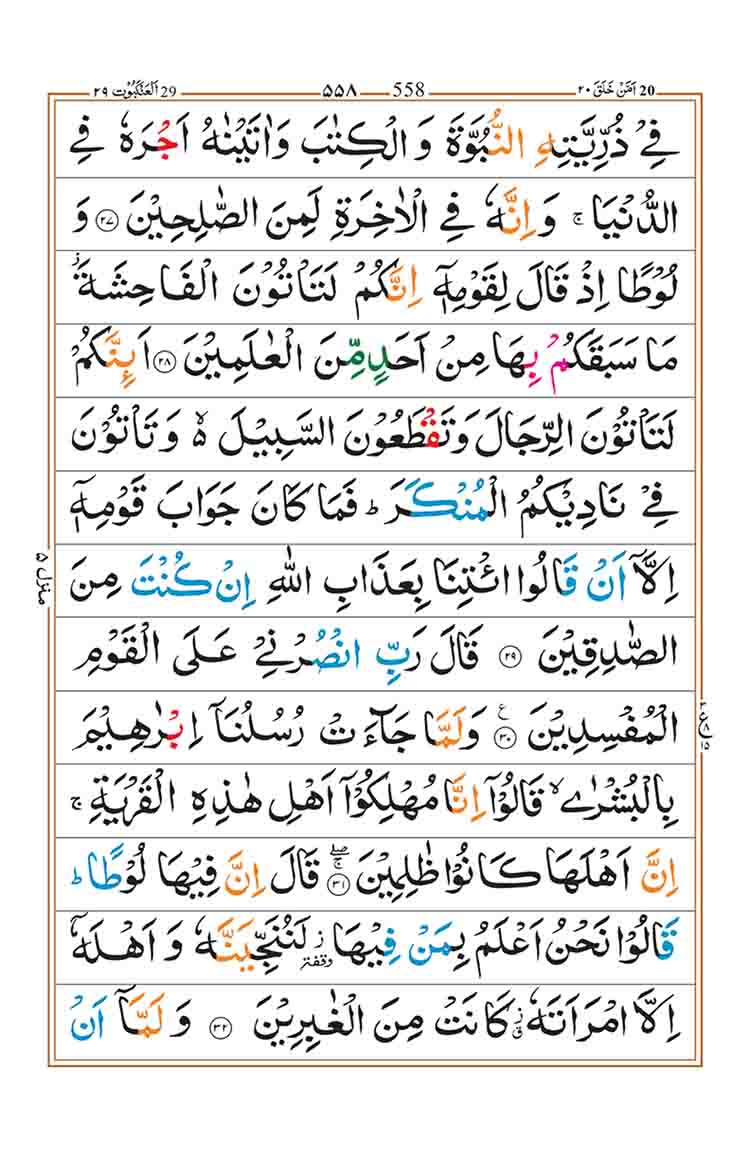 اَمَّنْ خَلَقَ ٢٠ 20 558 ۵۵۸ 29 اَلْعَنْكَبُوْت ٢٩
فِيْ ذُرِّيَّتِهِ النُّبُوَّةَ وَ الْكِتٰبَ وَاٰتَيْنٰهُ اَجْرَهٗ فِي
الدُّنْيَا ۚ وَاِنَّهٗ فِي الْاٰخِرَةِ لَمِنَ الصّٰلِحِيْنَ ۝٢٧ وَ
لُوْطًا اِذْ قَالَ لِقَوْمِهٖٓ اِنَّكُمْ لَتَاْتُوْنَ الْفَاحِشَةَ ؗ
مَا سَبَقَكُمْ بِهَا مِنْ اَحَدٍ مِّنَ الْعٰلَمِيْنَ ۝٢٨ اَئِنَّكُمْ
لَتَاْتُوْنَ الرِّجَالَ وَتَقْطَعُوْنَ السَّبِيْلَ ۙ۬ وَ تَاْتُوْنَ
فِيْ نَادِيْكُمُ الْمُنْكَرَ ؕ فَمَا كَانَ جَوَابَ قَوْمِهٖٓ
اِلَّاۤ اَنْ قَالُوا ائْتِنَا بِعَذَابِ اللّٰهِ اِنْ كُنْتَ مِنَ
الصّٰدِقِيْنَ ۝٢٩ قَالَ رَبِّ انْصُرْنِيْ عَلَى الْقَوْمِ
الْمُفْسِدِيْنَ ۝٣٠ ع وَلَمَّا جَآءَتْ رُسُلُنَاۤ اِبْرٰهِيْمَ
بِالْبُشْرٰى ۙ قَالُوْۤا اِنَّا مُهْلِكُوْۤا اَهْلِ هٰذِهِ الْقَرْيَةِ ۚ
اِنَّ اَهْلَهَا كَانُوْا ظٰلِمِيْنَ ۝٣١ ۚۖ قَالَ اِنَّ فِيْهَا لُوْطًا ؕ
قَالُوْا نَحْنُ اَعْلَمُ بِمَنْ فِيْهَا ز وقفة لَنُنَجِّيَنَّهٗ وَ اَهْلَهٗۤ
اِلَّا امْرَاَتَهٗ ز ق كَانَتْ مِنَ الْغٰبِرِيْنَ ۝٣٢ وَ لَمَّاۤ اَنْ
منزل ۵